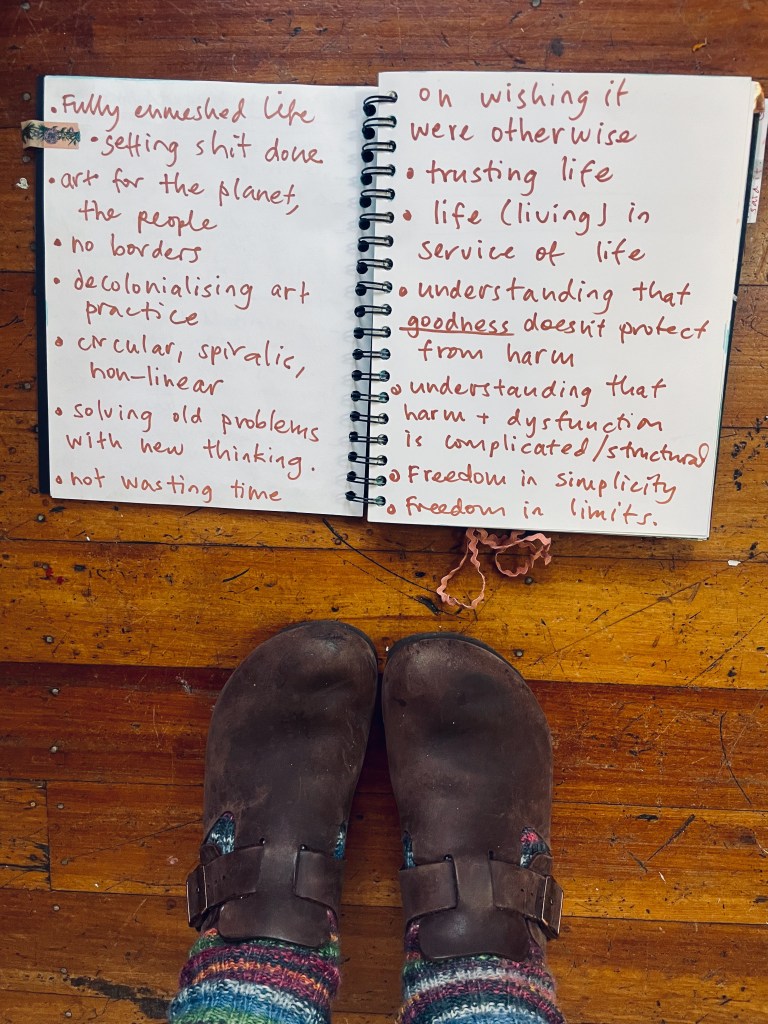 • Fully enmeshed life
• getting shit done
• art for the planet,
the people
• no borders
• decolonialising art
practice
• circular, spiralic,
non-linear
• solving old problems
with new thinking.
• not wasting time
on wishing it
were otherwise
• trusting life
• life (living) in
service of life
• understanding that
goodness doesn't protect
from harm
• understanding that
harm + dysfunction
is complicated/structural
• Freedom in simplicity
• Freedom in limits.